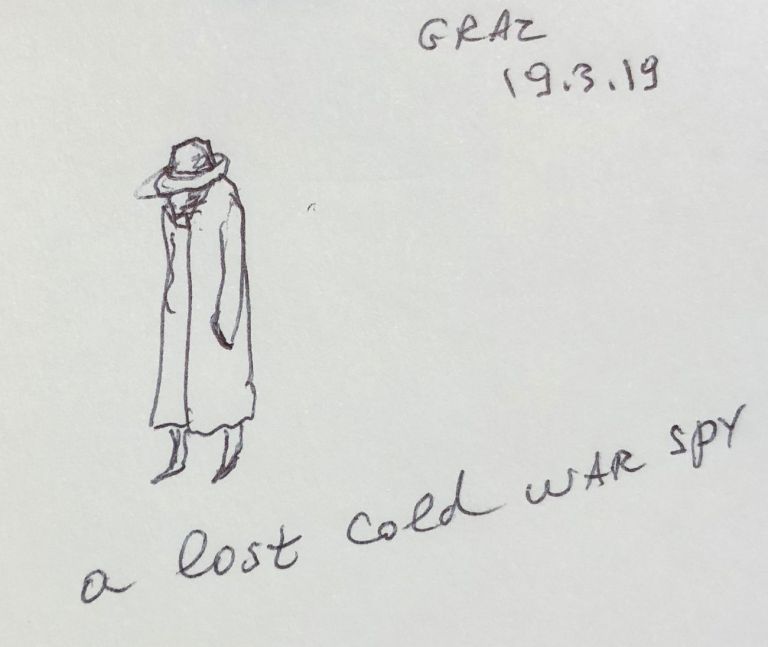 GRAZ
19.3.19
a lost cold WAR SPY